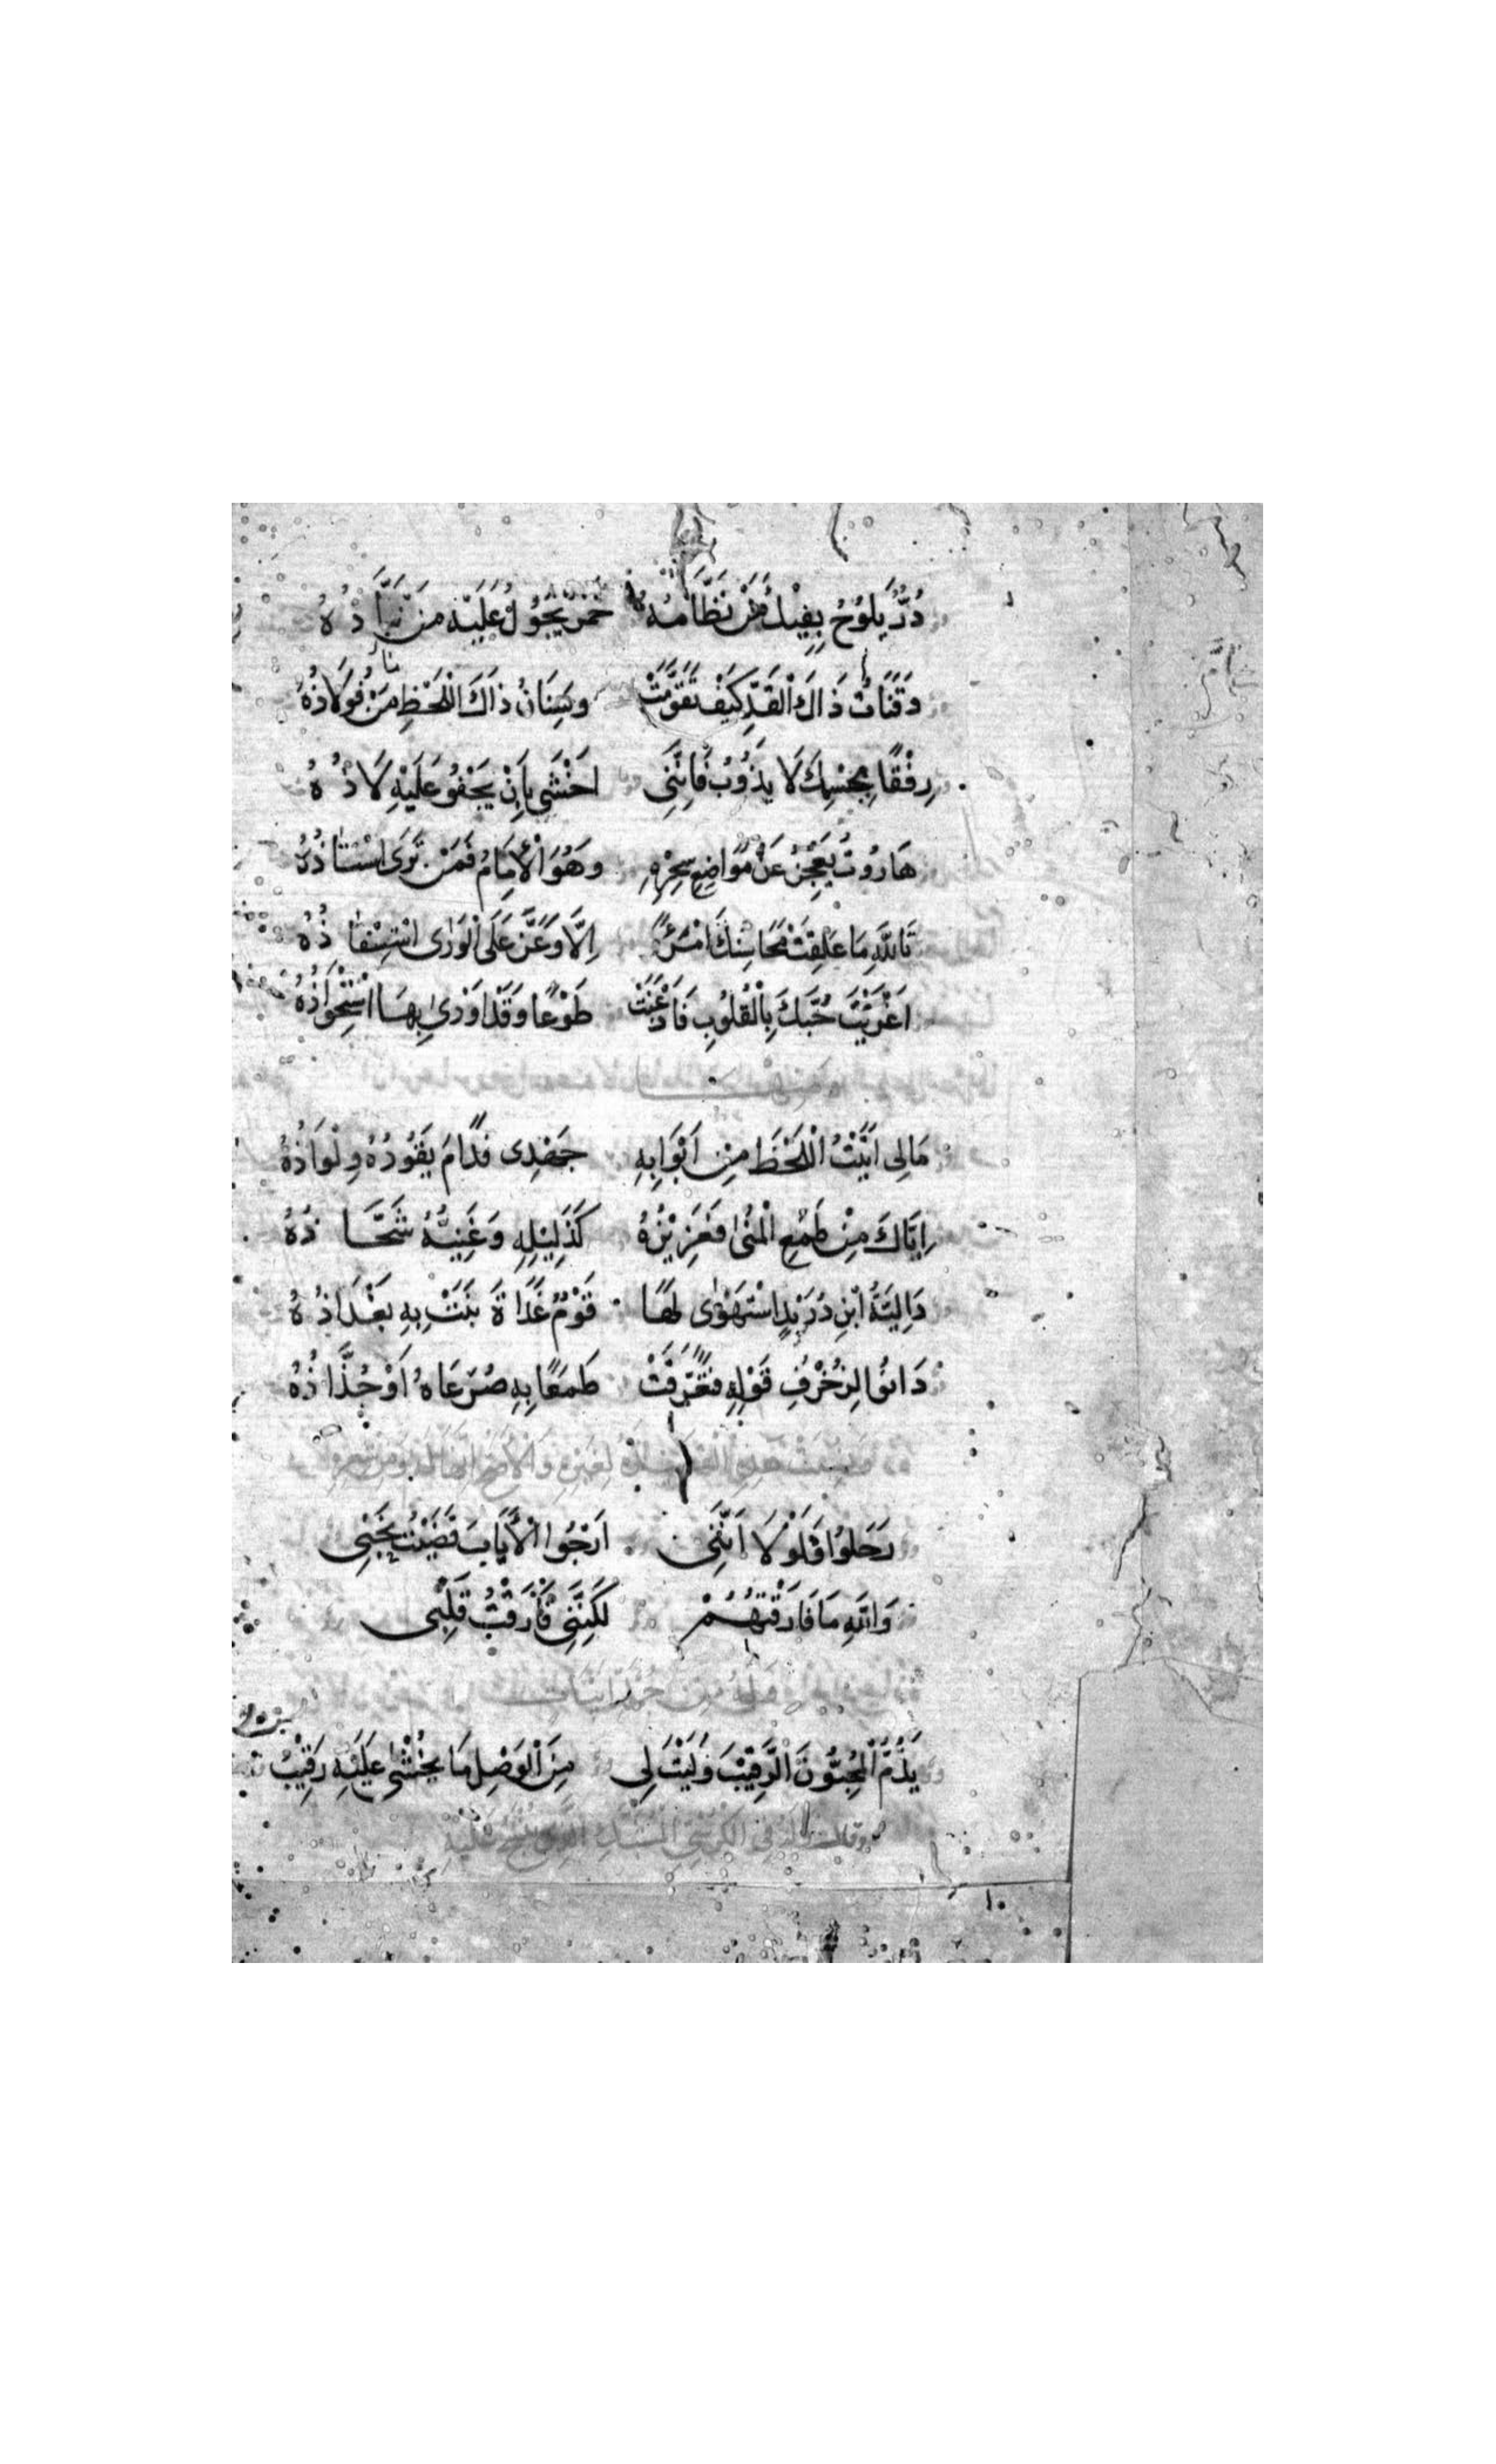 دُرٌّ يَلُوحُ بِفِيكَ مَن نَظَّامُهُ خمر يَجُولُ عَلَيْهِ مَن نَبَّاذُهُ
وَقَنَاتُ ذَاكَ الْقَدِّ كَيْفَ تَقَوَّمَتْ وَسِنَانُ ذَاكَ اللَّحْظِ مَنْ فُولَاذُهُ
رِفْقًا بِجِسْمِكَ لَا يَذُوبُ فَإِنَّنِى اخْشَى بِاَنْ يَجْفُو عَلَيْهِ لَاذُهُ
هَارُوتُ يَعْجِزُ عَنْ مَوَاضِعِ سِحْرِهِ وَهُوَ الْأِمَامُ فَمَنْ تَرَى اسْتَاذُهُ
تَاللَّهِ مَا عَلِقَتْ مَحَاسِنُكَ امْرَءًا اِلَّا وَعَزَّ عَلَى الْوَرَى اسْتِنْقَاذُهُ
اَغْرَيْتَ حُبَّكَ بِالْقُلُوبِ فَاَذْعَنَتْ طَوْعًا وَقَدْ اَوْدَى بِهَا اسْتِحْوَاذُهُ
مَالِى اَتَيْتُ الْلَحْظَ مِنْ اَبْوَابِهِ جَهْدِى فَدَامَ نُفُورُهُ وَلِوَاذُهُ
اِيَّاكَ مِنْ طَمَعِ الْمُنَى فَعَزِيْزُهُ كَذَلِيْلِهِ وَغَنِيُّهُ شَحَّاذُهُ
دَالِيَّةُ ابْنِ دُرَيْدٍ اسْتَهْوَى لَهَا قَوْمٌ غَدَاةَ نَبَتْ بِهِ بَغْدَاذُهُ
دَانُوا لِزُخْرُفِ قَوْلِهِ فَتَفَرَّقَتْ طَمَعًا بِهِ صُرَعَاهُ اَوْ جُذَّاذُهُ
رَحَلُوا فَلَوْلَا اَنَّنِى اَرْجُوا الْأَيَابَ قَضَيْتُ نَحْبِى
وَاللَّهِ مَا فَارَقْتُهُمْ لَكِنَّنِى فَارَقْتُ قَلْبِى
يَذُمُّ الْمُحِبُّونَ الرَّقِيْبَ وَلَيْتَ لِى مِنَ الْوَصْلِ مَا يُخْشَى عَلَيْهِ رَقِيْبُ